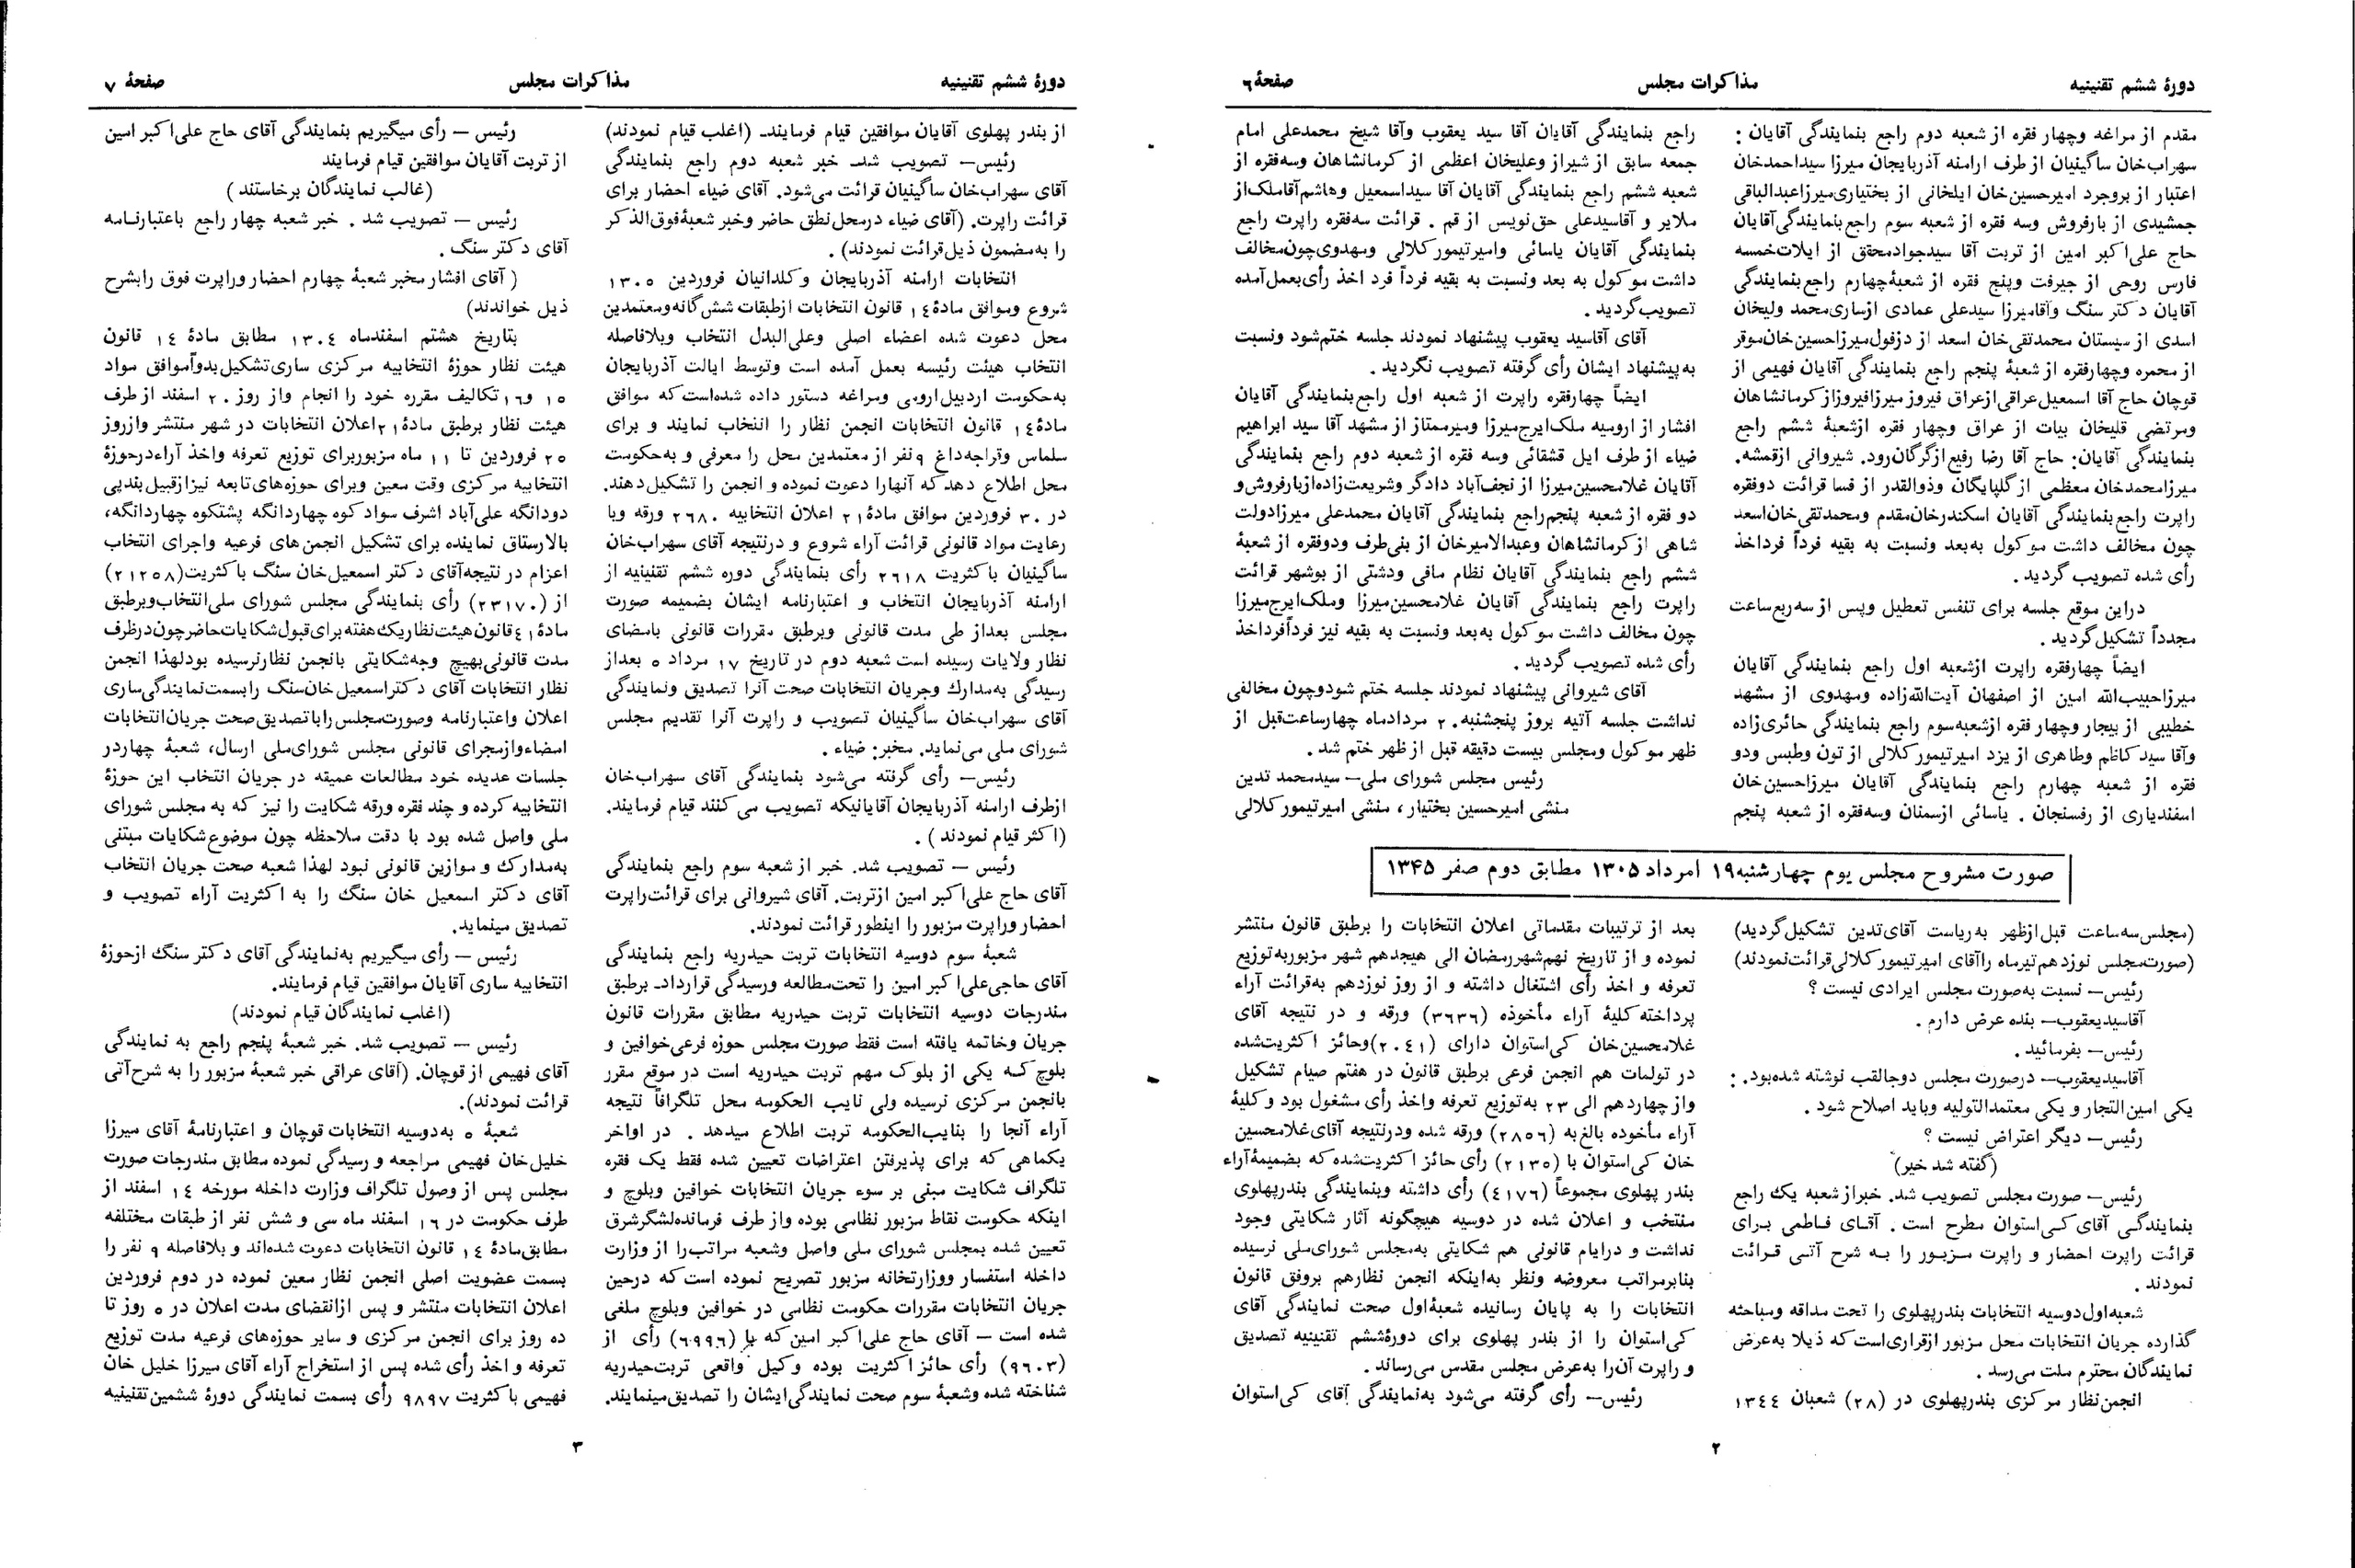 دورهٔ ششم تقنینیه
مذاکرات مجلس
صفحهٔ ٦
مقدم از مراغه وچهار فقره از شعبه دوم راجع بنمایندگی آقایان :
سهراب‌خان ساگینیان از طرف ارامنه آذربایجان میرزا سیداحمدخان
اعتبار از بروجرد امیرحسین‌خان ایلخانی از بختیاری‌میرزاعبدالباقی
جمشیدی از بارفروش وسه فقره از شعبه سوم راجع‌بنمایندگی‌آقایان
حاج علی‌اکبر امین از تربت آقا سیدجوادمحقق از ایلات‌خمسه
فارس روحی از جیرفت وپنج فقره از شعبهٔ‌چهارم راجع‌بنمایندگی
آقایان دکتر سنگ وآقامیرزا سیدعلی عمادی ازساری‌محمد ولیخان
اسدی از سیستان محمدتقی‌خان اسعد از دزفول‌میرزاحسین‌خان‌موقر
از محمره وچهارفقره از شعبهٔ پنجم راجع بنمایندگی آقایان فهیمی از
قوچان حاج آقا اسمعیل‌عراقی‌ازعراق فیروز میرزافیروزاز کرمانشاهان
ومرتضی قلیخان بیات از عراق وچهار فقره ازشعبهٔ ششم راجع
بنمایندگی آقایان: حاج آقا رضا رفیع‌ازگرگان‌رود. شیروانی ازقمشه.
میرزامحمدخان معظمی از گلپایگان وذوالقدر از فسا قرائت دوفقره
راپرت راجع‌بنمایندگی آقایان اسکندرخان‌مقدم ومحمدتقی‌خان‌اسعد
چون مخالف داشت موکول به‌بعد ونسبت به بقیه فرداً فرداخذ
رأی شده تصویب گردید .
دراین موقع جلسه برای تنفس تعطیل وپس از سه‌ربع‌ساعت
مجدداً تشکیل‌گردید .
ایضاً چهارفقره راپرت ازشعبه اول راجع بنمایندگی آقایان
میرزاحبیب‌الله امین از اصفهان آیت‌الله‌زاده ومهدوی از مشهد
خطیبی از بیجار وچهار فقره ازشعبه‌سوم راجع بنمایندگی حائری‌زاده
وآقا سید کاظم وطاهری از یزد امیرتیمور کلالی از تون وطبس ودو
فقره از شعبه چهارم راجع بنمایندگی آقایان میرزاحسین‌خان
اسفندیاری از رفسنجان . یاسائی ازسمنان وسه‌فقره از شعبه پنجم
راجع بنمایندگی آقایان آقا سید یعقوب وآقا شیخ محمدعلی امام
جمعه سابق از شیراز وعلیخان اعظمی از کرمانشاهان وسه‌فقره از
شعبه ششم راجع بنمایندگی آقایان آقا سیداسمعیل وهاشم‌آقاملک‌از
ملایر و آقاسیدعلی حق‌نویس از قم . قرائت سه‌فقره راپرت راجع
بنمایندگی آقایان یاسائی وامیرتیمور کلالی ومهدوی‌چون‌مخالف
داشت موکول به بعد ونسبت به بقیه فرداً فرد اخذ رأی‌بعمل‌آمده
تصویب‌گردید .
آقای آقاسید یعقوب پیشنهاد نمودند جلسه ختم‌شود ونسبت
به‌پیشنهاد ایشان رأی گرفته تصویب نگردید .
ایضاً چهارفقره راپرت از شعبه اول راجع‌بنمایندگی آقایان
افشار از ارومیه ملک‌ایرج‌میرزا ومیرممتاز از مشهد آقا سید ابراهیم
ضیاء از طرف ایل قشقائی وسه فقره از شعبه دوم راجع بنمایندگی
آقایان غلامحسین‌میرزا از نجف‌آباد دادگر وشریعت‌زاده‌ازبارفروش‌و
دو فقره از شعبه پنجم‌راجع بنمایندگی آقایان محمدعلی میرزادولت
شاهی از کرمانشاهان وعبدالامیرخان از بنی‌طرف ودوفقره از شعبهٔ
ششم راجع بنمایندگی آقایان نظام مافی ودشتی از بوشهر قرائت
راپرت راجع بنمایندگی آقایان غلامحسین‌میرزا وملک‌ایرج‌میرزا
چون مخالف داشت موکول به‌بعد ونسبت به بقیه نیز فرداًفرداخذ
رأی شده تصویب گردید .
آقای شیروانی پیشنهاد نمودند جلسه ختم شودوچون مخالفی
نداشت جلسه آتیه بروز پنجشنبه ٢٠ مردادماه چهارساعت‌قبل از
ظهر موکول ومجلس بیست دقیقه قبل از ظهر ختم شد .
رئیس مجلس شورای ملی — سیدمحمد تدین
منشی امیرحسین بختیار ، منشی امیرتیمور کلالی
صورت مشروح مجلس یوم چهارشنبه١٩ امرداد ١٣٠٥ مطابق دوم صفر ١٣٤٥
(مجلس‌سه‌ساعت قبل‌ازظهر به‌ریاست آقای‌تدین تشکیل‌گردید)
(صورت‌مجلس نوزدهم‌تیرماه راآقای امیرتیمور کلالی‌قرائت‌نمودند)
رئیس— نسبت به‌صورت مجلس ایرادی نیست ؟
آقاسیدیعقوب— بنده عرض دارم .
رئیس— بفرمائید .
آقاسیدیعقوب— درصورت مجلس دوجالقب نوشته شده‌بود. :
یکی امین‌التجار و یکی معتمدالتولیه وباید اصلاح شود .
رئیس— دیگر اعتراض نیست ؟
(گفته شد خیر)
رئیس— صورت مجلس تصویب شد. خبراز شعبه یک راجع
بنمایندگی آقای کی‌استوان مطرح است . آقای فاطمی برای
قرائت راپرت احضار و راپرت مزبور را به شرح آتی قرائت
نمودند .
شعبه‌اول‌دوسیه انتخابات بندرپهلوی را تحت مداقه ومباحثه
گذارده جریان انتخابات محل مزبور ازقراری‌است‌که ذیلا به‌عرض
نمایندگان محترم ملت می‌رسد .
انجمن‌نظار مرکزی بندرپهلوی در (٢٨) شعبان ١٣٤٤
بعد از ترتیبات مقدماتی اعلان انتخابات را برطبق قانون منتشر
نموده و از تاریخ نهم‌شهررمضان الی هیجدهم شهر مزبوربه‌توزیع
تعرفه و اخذ رأی اشتغال داشته و از روز نوزدهم به‌قرائت آراء
پرداخته کلیهٔ آراء مأخوذه (٣٦٣٦) ورقه و در نتیجه آقای
غلامحسین‌خان کی‌استوان دارای (٢٠٤١)وحائز اکثریت‌شده
در تولمات هم انجمن فرعی برطبق قانون در هفتم صیام تشکیل
واز چهاردهم الی ٢٣ به‌توزیع تعرفه واخذ رأی مشغول بود و کلیهٔ
آراء مأخوذه بالغ‌به (٢٨٥٦) ورقه شده ودرنتیجه آقای‌غلامحسین
خان کی‌استوان با (٢١٣٥) رأی حائز اکثریت‌شده که بضمیمهٔ‌آراء
بندر پهلوی مجموعاً (٤١٧٦) رأی داشته وبنمایندگی بندرپهلوی
منتخب و اعلان شده در دوسیه هیچگونه آثار شکایتی وجود
نداشت و درایام قانونی هم شکایتی به‌مجلس شورای‌ملی نرسیده
بنابرمراتب معروضه ونظر به‌اینکه انجمن نظارهم بروفق قانون
انتخابات را به پایان رسانیده شعبهٔ‌اول صحت نمایندگی آقای
کی‌استوان را از بندر پهلوی برای دورهٔ‌ششم تقنینیه تصدیق
و راپرت آن‌را به‌عرض مجلس مقدس می‌رساند .
رئیس— رأی گرفته می‌شود به‌نمایندگی آقای کی‌استوان
٢
دورهٔ ششم تقنینیه
مذاکرات مجلس
صفحهٔ ٧
از بندر پهلوی آقایان موافقین قیام فرمایندـ (اغلب قیام نمودند)
رئیس— تصویب شدـ خبر شعبه دوم راجع بنمایندگی
آقای سهراب‌خان ساگینیان قرائت می‌شود. آقای ضیاء احضار برای
قرائت راپرت. (آقای ضیاء درمحل‌نطق حاضر وخبر شعبهٔ‌فوق‌الذکر
را به‌مضمون ذیل‌قرائت نمودند) .
انتخابات ارامنه آذربایجان وکلدانیان فروردین ١٣٠٥
شروع وموافق مادهٔ ١٤ قانون انتخابات ازطبقات شش‌گانه‌ومعتمدین
محل دعوت شده اعضاء اصلی وعلی‌البدل انتخاب وبلافاصله
انتخاب هیئت رئیسه بعمل آمده است وتوسط ایالت آذربایجان
به‌حکومت اردبیل‌ارومی ومراغه دستور داده شده‌است‌که موافق
مادهٔ ١٤ قانون انتخابات انجمن نظار را انتخاب نمایند و برای
سلماس وقراجه‌داغ ٩نفر از معتمدین محل را معرفی و به‌حکومت
محل اطلاع دهد که آنهارا دعوت نموده و انجمن را تشکیل‌دهند.
در ٣٠ فروردین موافق مادهٔ ٢١ اعلان انتخابیه ٢٦٨٠ ورقه وبا
رعایت مواد قانونی قرائت آراء شروع و درنتیجه آقای سهراب‌خان
ساگینیان باکثریت ٢٦١٨ رأی بنمایندگی دوره ششم تقنینیه از
ارامنه آذربایجان انتخاب و اعتبارنامه ایشان بضمیمه صورت
مجلس بعداز طی مدت قانونی وبرطبق مقررات قانونی بامضای
نظار ولایات رسیده است شعبه دوم در تاریخ ١٧ مرداد ٥ بعداز
رسیدگی به‌مدارک وجریان انتخابات صحت آنرا تصدیق ونمایندگی
آقای سهراب‌خان ساگینیان تصویب و راپرت آنرا تقدیم مجلس
شورای ملی می‌نماید. مخبر: ضیاء .
رئیس— رأی گرفته می‌شود بنمایندگی آقای سهراب‌خان
ازطرف ارامنه آذربایجان آقایانیکه تصویب می‌کنند قیام فرمایند.
(اکثر قیام نمودند ) .
رئیس — تصویب شد. خبر از شعبه سوم راجع بنمایندگی
آقای حاج علی‌اکبر امین ازتربت. آقای شیروانی برای قرائت‌راپرت
احضار وراپرت مزبور را اینطور قرائت نمودند.
شعبهٔ سوم دوسیه انتخابات تربت حیدریه راجع بنمایندگی
آقای حاجی‌علی‌اکبر امین را تحت‌مطالعه ورسیدگی قراردادـ برطبق
مندرجات دوسیه انتخابات تربت حیدریه مطابق مقررات قانون
جریان وخاتمه یافته است فقط صورت مجلس حوزه فرعی‌خوافین و
بلوچ که یکی از بلوک مهم تربت حیدریه است در موقع مقرر
بانجمن مرکزی نرسیده ولی نایب الحکومه محل تلگرافاً نتیجه
آراء آنجا را بنایب‌الحکومه تربت اطلاع میدهد . در اواخر
یکماهی که برای پذیرفتن اعتراضات تعیین شده فقط یک فقره
تلگراف شکایت مبنی بر سوء جریان انتخابات خوافین وبلوچ و
اینکه حکومت نقاط مزبور نظامی بوده واز طرف فرمانده‌لشگرشرق
تعیین شده بمجلس شورای ملی واصل وشعبه مراتب‌را از وزارت
داخله استفسار ووزارتخانه مزبور تصریح نموده است‌که درحین
جریان انتخابات مقررات حکومت نظامی در خوافین وبلوچ ملغی
شده است — آقای حاج علی‌اکبر امین‌که با (٦٩٩٦) رأی از
(٩٦٠٣) رأی حائز اکثریت بوده وکیل واقعی تربت‌حیدریه
شناخته شده وشعبهٔ سوم صحت نمایندگی‌ایشان را تصدیق‌مینمایند.
رئیس — رأی میگیریم بنمایندگی آقای حاج علی‌اکبر امین
از تربت آقایان موافقین قیام فرمایند
(غالب نمایندگان برخاستند )
رئیس — تصویب شد . خبر شعبه چهار راجع باعتبارنامه
آقای دکتر سنگ .
( آقای افشار مخبر شعبهٔ چهارم احضار وراپرت فوق رابشرح
ذیل خواندند)
بتاریخ هشتم اسفندماه ١٣٠٤ مطابق مادهٔ ١٤ قانون
هیئت نظار حوزهٔ انتخابیه مرکزی ساری‌تشکیل‌بدواًموافق مواد
١٥ و١٦ تکالیف مقرره خود را انجام واز روز ٢٠ اسفند از طرف
هیئت نظار برطبق مادهٔ ٢١اعلان انتخابات در شهر منتشر وازروز
٢٥ فروردین تا ١١ ماه مزبوربرای توزیع تعرفه واخذ آراءدرحوزهٔ
انتخابیه مرکزی وقت معین وبرای حوزه‌های‌تابعه نیزازقبیل‌بندپی
دودانگه علی‌آباد اشرف سواد کوه چهاردانگه پشتکوه چهاردانگه،
بالارستاق نماینده برای تشکیل انجمن‌های فرعیه واجرای انتخاب
اعزام در نتیجه‌آقای دکتر اسمعیل‌خان سنگ باکثریت(٢١٢٥٨)
از (٢٣١٧٠) رأی بنمایندگی مجلس شورای ملی‌انتخاب‌وبرطبق
مادهٔ ٤١قانون‌هیئت‌نظاریک‌هفته‌برای‌قبول‌شکایات‌حاضرچون‌درظرف
مدت قانونی‌بهیچ وجه‌شکایتی بانجمن نظارنرسیده بودلهذا انجمن
نظار انتخابات آقای دکتراسمعیل‌خان‌سنگ رابسمت‌نمایندگی‌ساری
اعلان واعتبارنامه وصورت‌مجلس‌راباتصدیق‌صحت جریان‌انتخابات
امضاءوازمجرای قانونی مجلس شورای‌ملی ارسال، شعبهٔ چهاردر
جلسات عدیده خود مطالعات عمیقه در جریان انتخاب این حوزهٔ
انتخابیه کرده و چند فقره ورقه شکایت را نیز که به مجلس شورای
ملی واصل شده بود با دقت ملاحظه چون موضوع شکایات مبتنی
به‌مدارک و موازین قانونی نبود لهذا شعبه صحت جریان انتخاب
آقای دکتر اسمعیل خان سنگ را به اکثریت آراء تصویب و
تصدیق مینماید.
رئیس — رأی میگیریم به‌نمایندگی آقای دکتر سنگ ازحوزهٔ
انتخابیه ساری آقایان موافقین قیام فرمایند.
(اغلب نمایندگان قیام نمودند)
رئیس — تصویب شد. خبر شعبهٔ پنجم راجع به نمایندگی
آقای فهیمی از قوچان. (آقای عراقی خبر شعبهٔ مزبور را به شرح‌آتی
قرائت نمودند).
شعبهٔ ٥ به‌دوسیه انتخابات قوچان و اعتبارنامهٔ آقای میرزا
خلیل‌خان فهیمی مراجعه و رسیدگی نموده مطابق مندرجات صورت
مجلس پس از وصول تلگراف وزارت داخله مورخه ١٤ اسفند از
طرف حکومت در ١٦ اسفند ماه سی و شش نفر از طبقات مختلفه
مطابق‌مادهٔ ١٤ قانون انتخابات دعوت شده‌اند و بلافاصله ٩ نفر را
بسمت عضویت اصلی انجمن نظار معین نموده در دوم فروردین
اعلان انتخابات منتشر و پس ازانقضای مدت اعلان در ٥ روز تا
ده روز برای انجمن مرکزی و سایر حوزه‌های فرعیه مدت توزیع
تعرفه و اخذ رأی شده پس از استخراج آراء آقای میرزا خلیل خان
فهیمی باکثریت ٩٨٩٧ رأی بسمت نمایندگی دورهٔ ششمین‌تقنینیه
٣